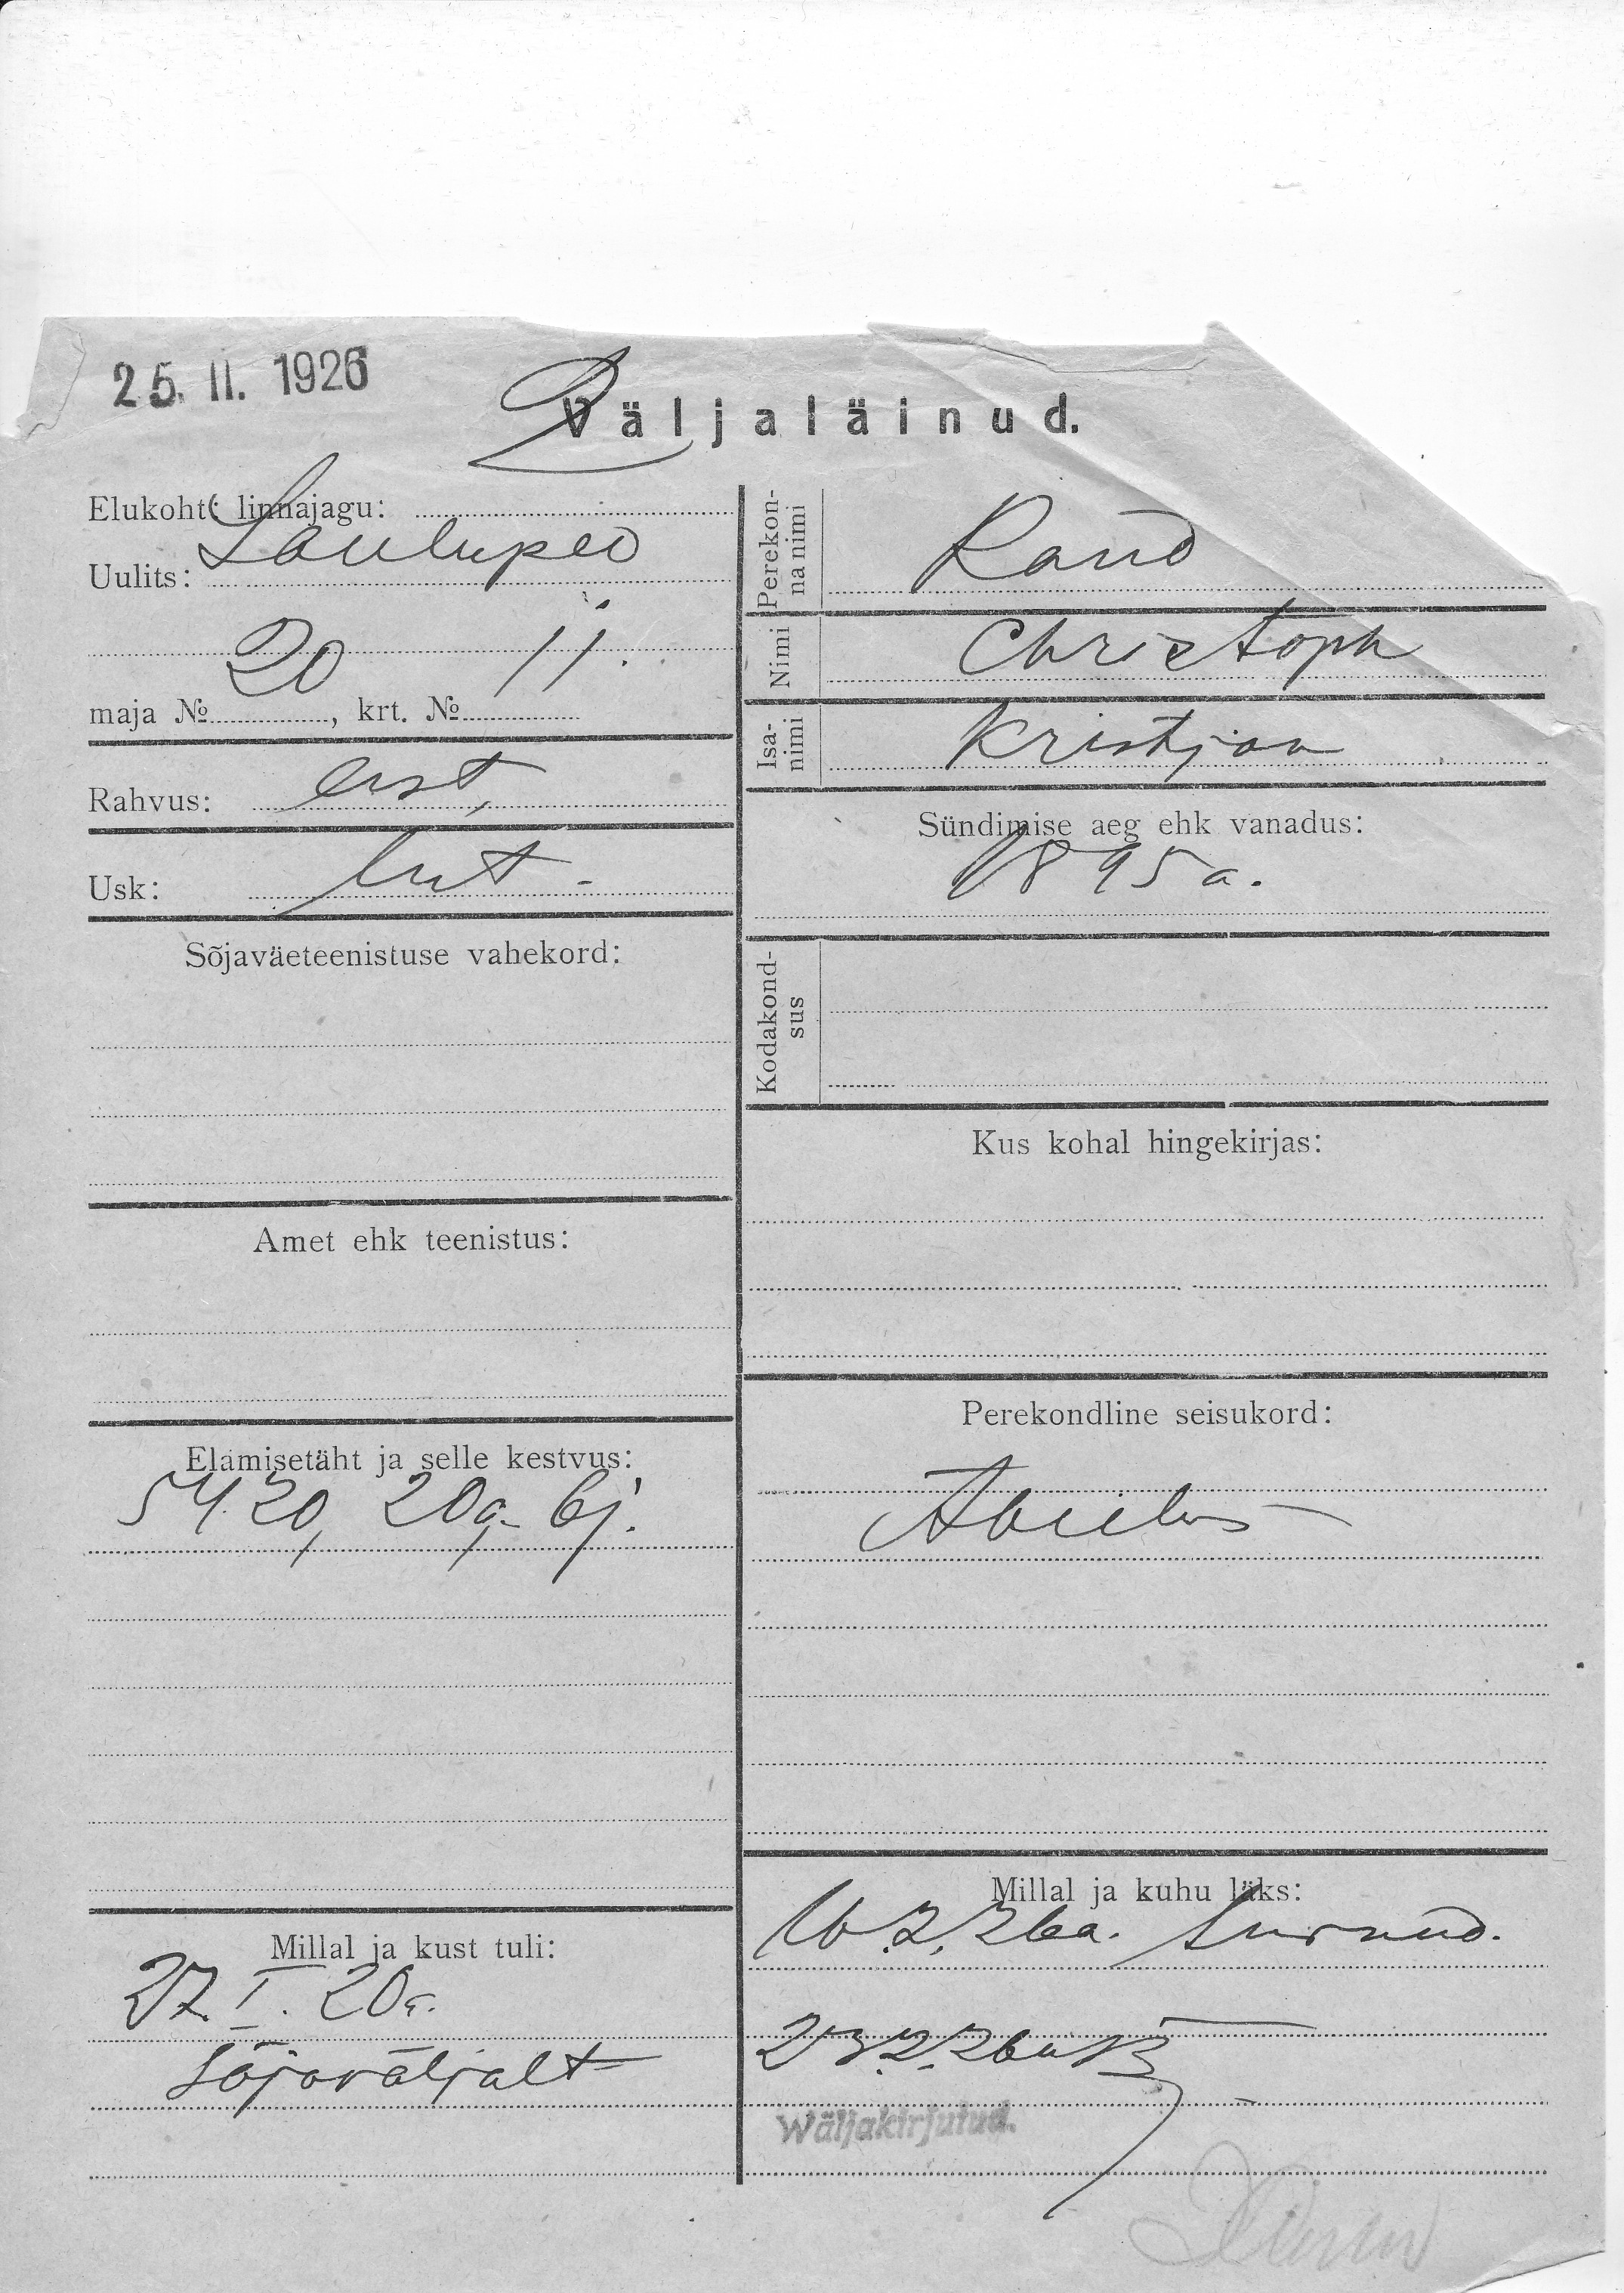 25. II. 1926
Väljaläinud.
Elukoht: linnajagu:
Uulits: Laulupeo
20 11.
maja №, krt. №
Rahvus: eest,
Usk: lut.
Sõjaväeteenistuse vahekord:
Amet ehk teenistus:
Elamisetäht ja selle kestvus:
5420, 20a,- 6j.
Millal ja kust tuli:
27. I. 20a.
Sõjaväljalt
Perekon-
na nimi
Raud
Nimi
Christoph
Isa-
nimi
Kristjan
Sündimise aeg ehk vanadus:
1895a.
Kodakond-
sus
Kus kohal hingekirjas:
Perekondline seisukord:
Abielus
Millal ja kuhu läks:
16.2.26a. Surnud.
23.2.26a
Wäljakirjutud.